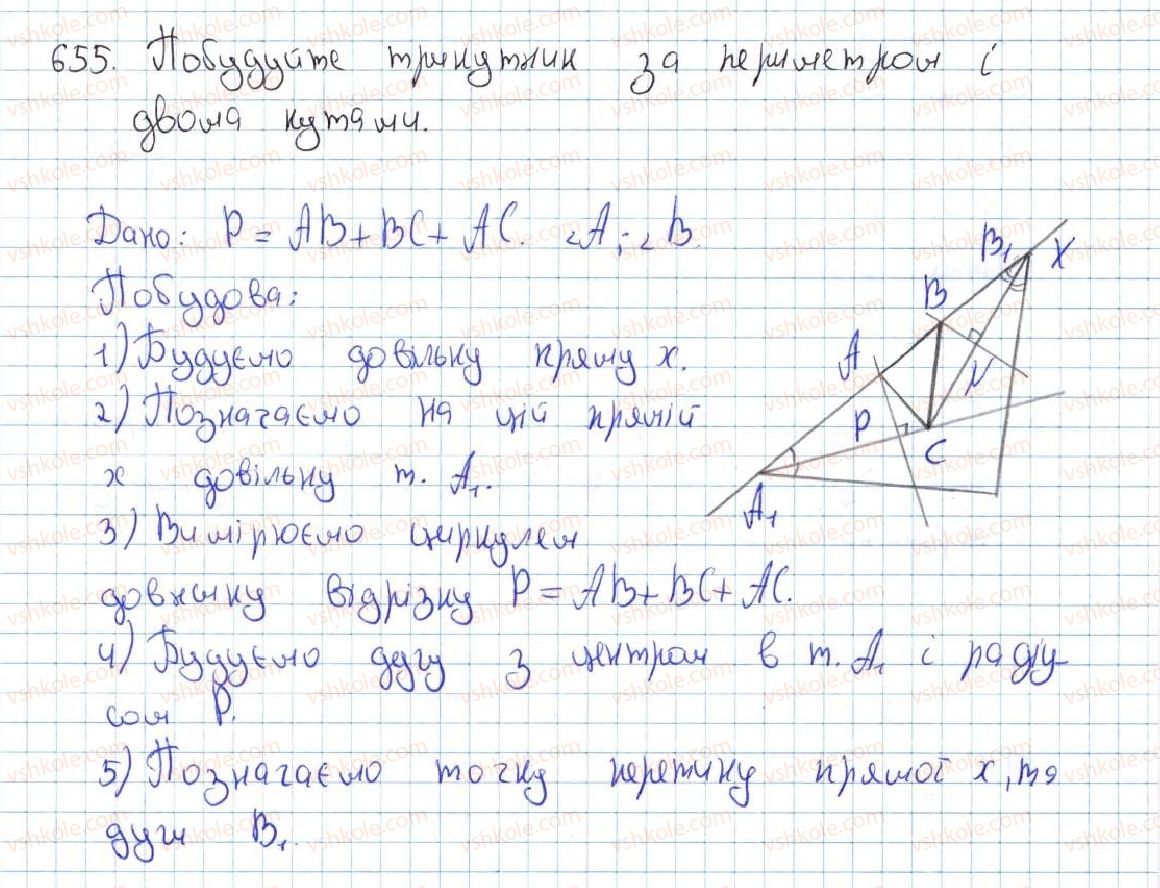 655. Побудуйте трикутник за периметром і
двома кутами.
Дано: P = AB + BC + AC. ∠A; ∠B.
Побудова:
1) Будуємо довільну пряму x.
2) Позначаємо на цій прямій
x довільну т. A₁.
3) Вимірюємо циркулем
довжину відрізку P = AB + BC + AC.
4) Будуємо дугу з центром в т. A₁ і радіу-
сом P.
5) Позначаємо точку перетину прямої x, та
дуги B₁.
B₁ X
B
A
N
P
C
A₁
vshkole.com